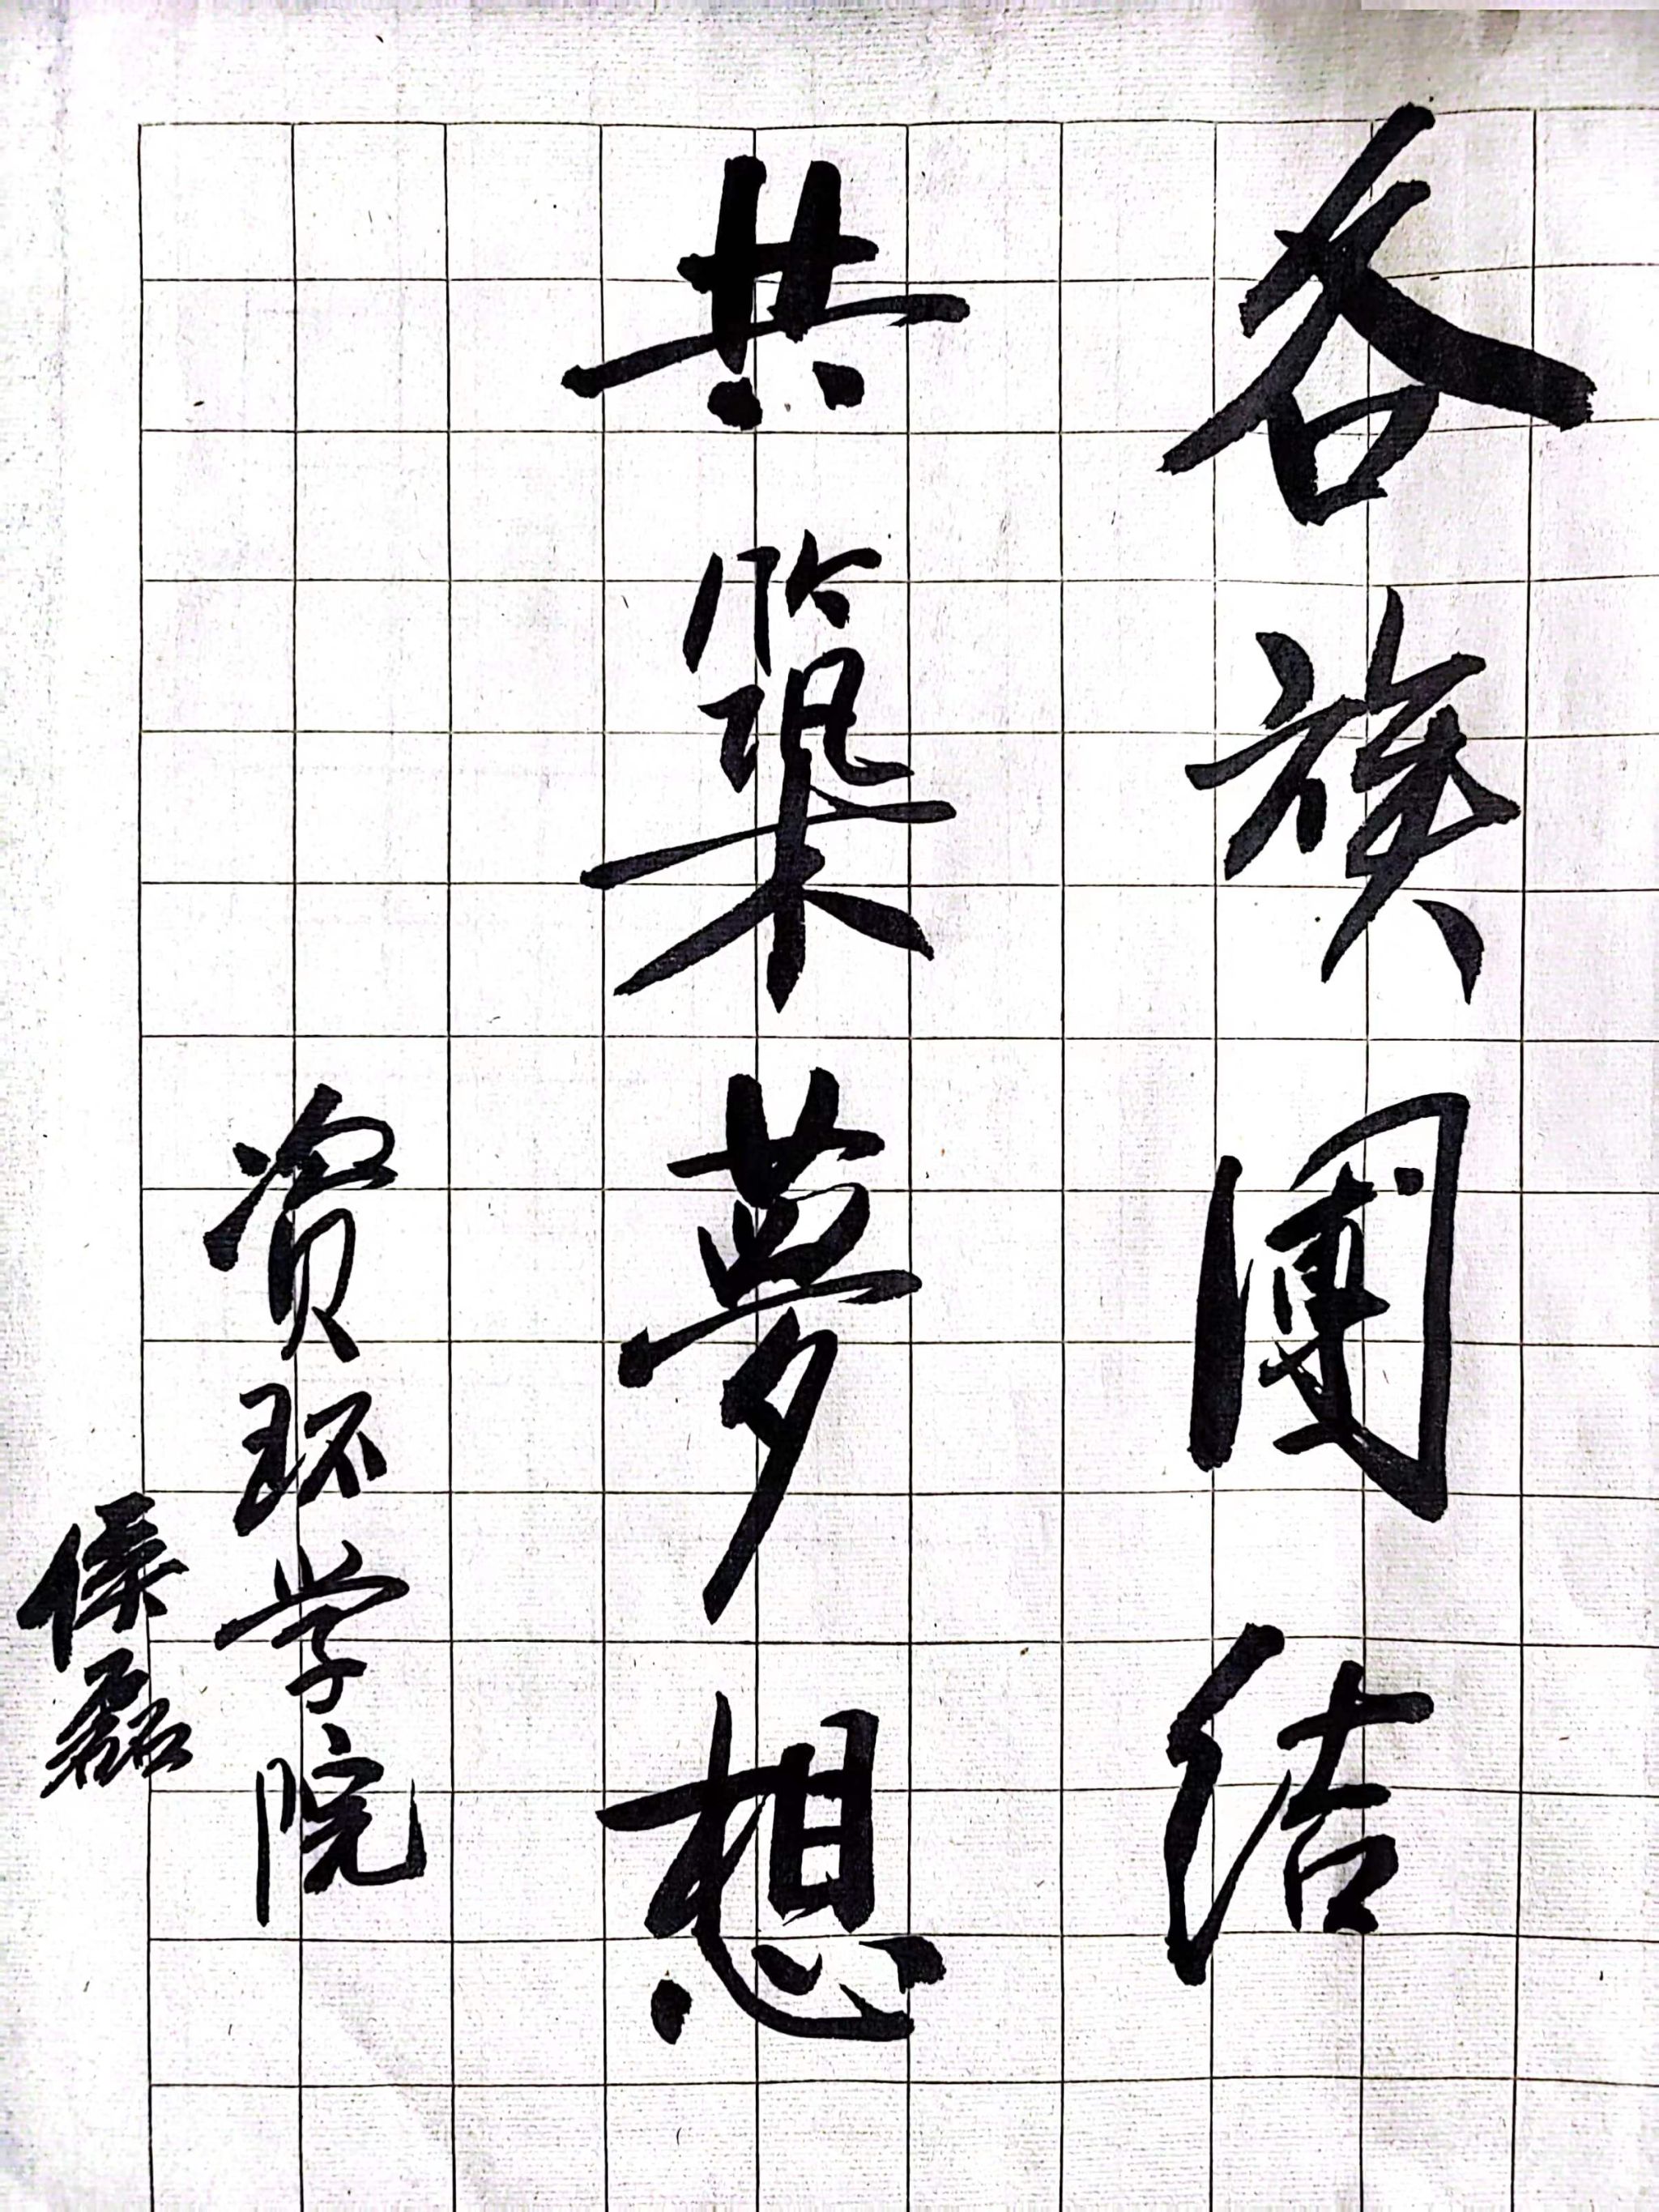 各族團结
共築夢想
资环学院
侯磊